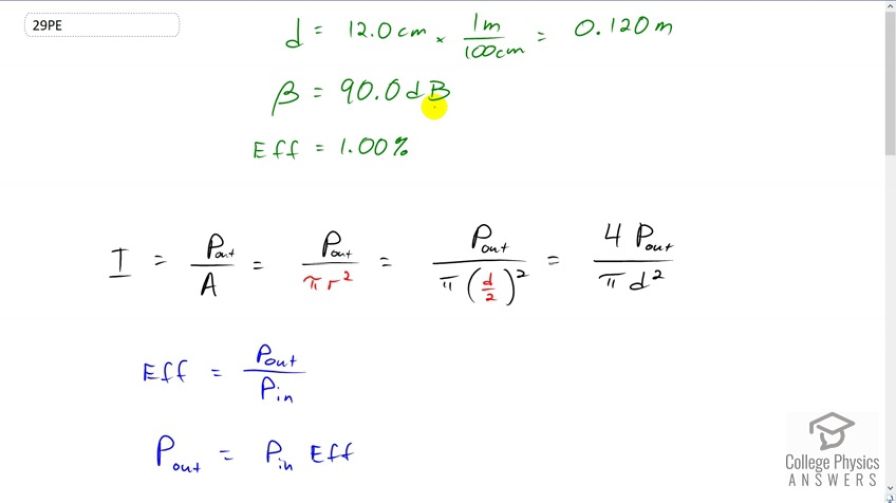 29PE
d = 12.0 cm × 1m/100cm = 0.120 m
β = 90.0 dB
Eff = 1.00%
I = Pout/A = Pout/πr² = Pout/π(d/2)² = 4 Pout/πd²
Eff = Pout/Pin
Pout = Pin Eff
College Physics
ANSWERS